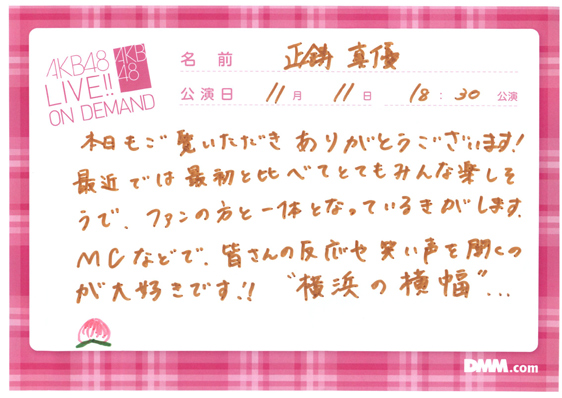 AKB48
LIVE!!
ON DEMAND
AKB
48
名 前 正鋳 真優
公演日 11月 11日 18:30 公演
本日もご覧いただき ありがとうございます!
最近では最初と比べてとてもみんな楽しそ
うで、ファンの方と一体となっているきがします。
MCなどで、皆さんの反応や笑い声を聞くの
が大好きです!! "横浜の横幅"...
DMM.com